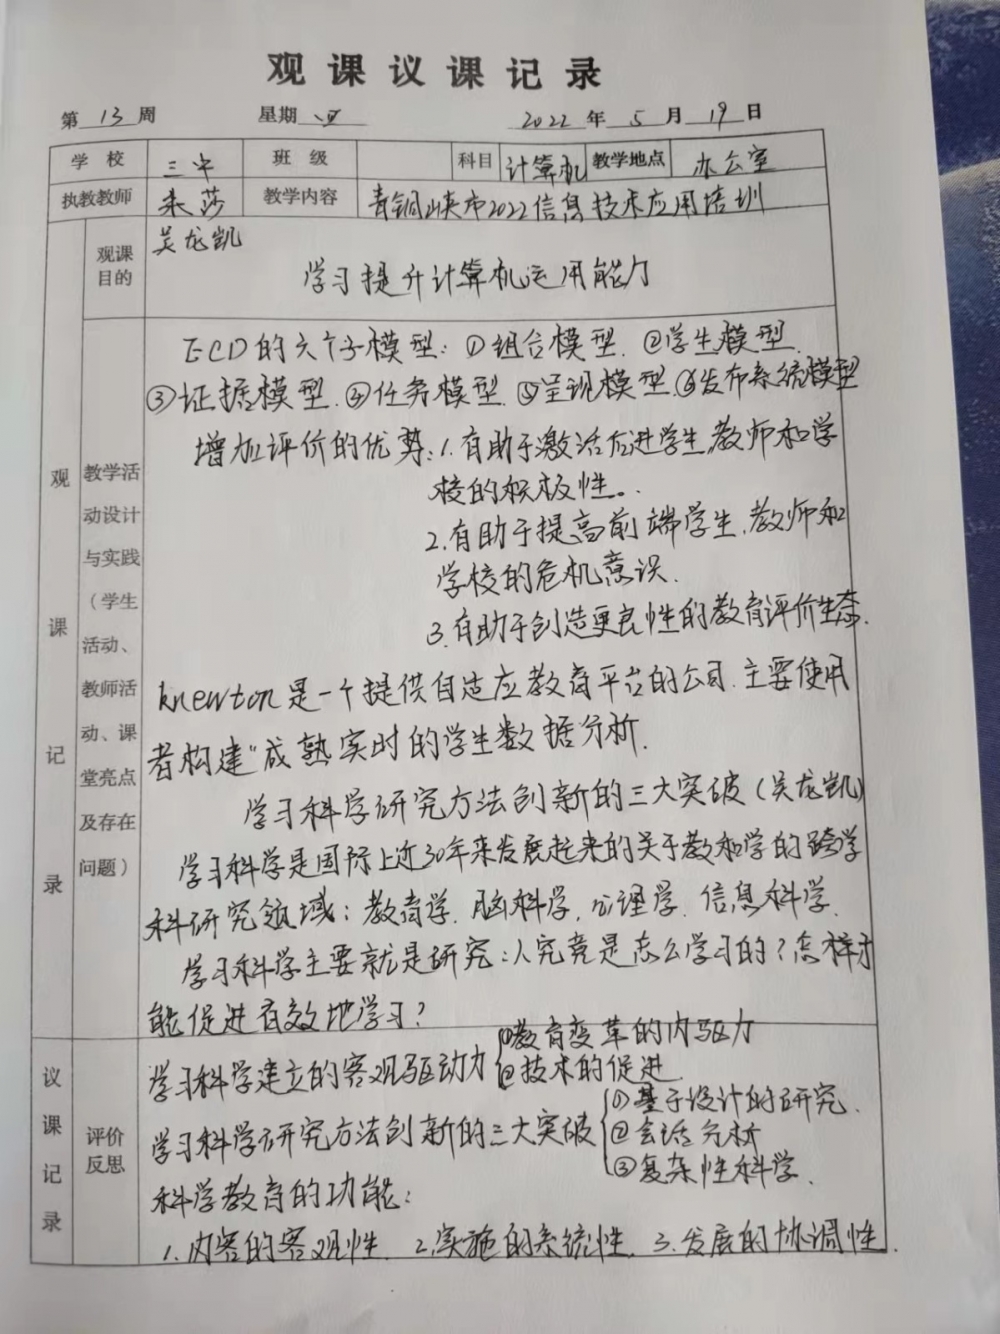 观课议课记录
第 13 周 星期 四 2022 年 5 月 19 日
学校 三中 班级 科目 计算机 教学地点 办公室
执教教师 朱莎 教学内容 青铜峡市2022信息技术应用培训
吴龙凯
观课目的 学习提升计算机运用能力
观课记录
教学活动设计与实践(学生活动、教师活动、课堂亮点及存在问题)
ECD的六个子模型:①组合模型.②学生模型.
③证据模型.④任务模型.⑤呈现模型.⑥发布系统模型
增加评价的优势:1.有助于激活后进学生,教师和学
校的积极性..
2.有助于提高前端学生.教师和
学校的危机意识.
3.有助于创造更良性的教育评价生态.
knewton是一个提供自适应教育平台的公司.主要使用
者构建"成熟实时的学生数据分析.
学习科学研究方法创新的三大突破(吴龙凯)
学习科学是国际上近30年来发展起来的关于教和学的跨学
科研究领域:教育学.脑科学,心理学.信息科学.
学习科学主要就是研究:人究竟是怎么学习的?怎样才
能促进有效地学习?
议课记录
评价反思
学习科学建立的客观驱动力 ①教育变革的内驱力
②技术的促进
学习科学研究方法创新的三大突破 ①基于设计的研究.
②会话分析
③复杂性科学.
科学教育的功能:
1.内容的客观性. 2.实施的系统性. 3.发展的协调性.